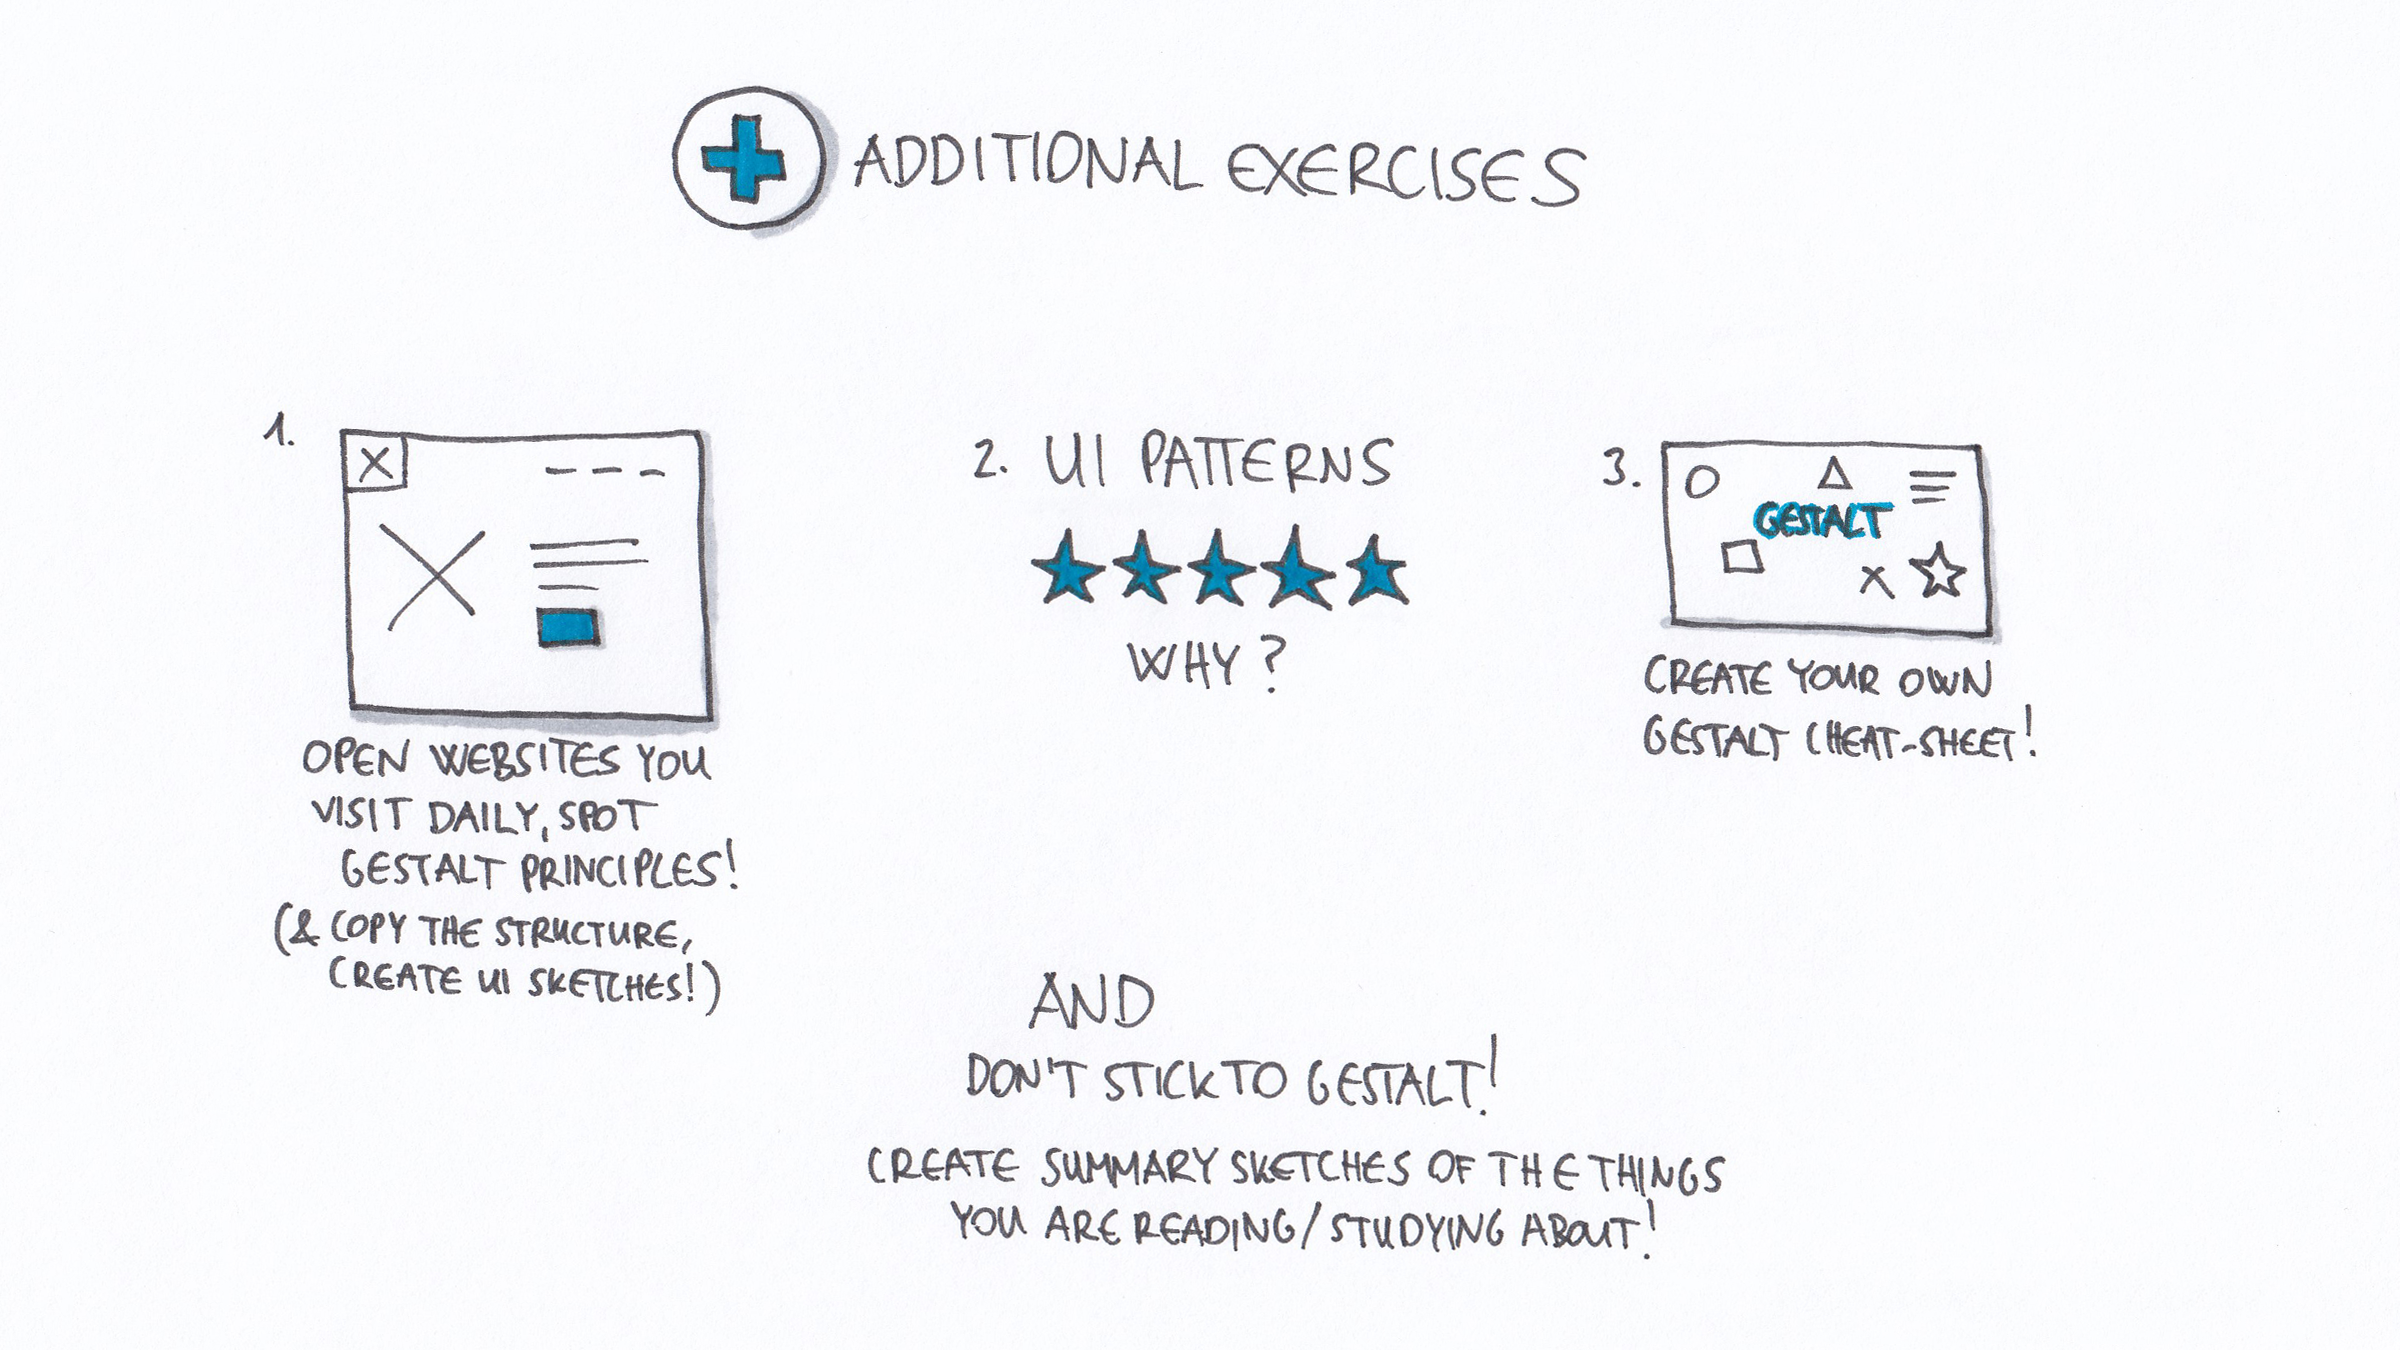 ADDITIONAL EXERCISES
1.
OPEN WEBSITES YOU
VISIT DAILY, SPOT
GESTALT PRINCIPLES!
(& COPY THE STRUCTURE,
CREATE UI SKETCHES!)
2. UI PATTERNS
WHY?
3.
GESTALT
CREATE YOUR OWN
GESTALT CHEAT-SHEET!
AND
DON'T STICK TO GESTALT!
CREATE SUMMARY SKETCHES OF THE THINGS
YOU ARE READING/STUDYING ABOUT!